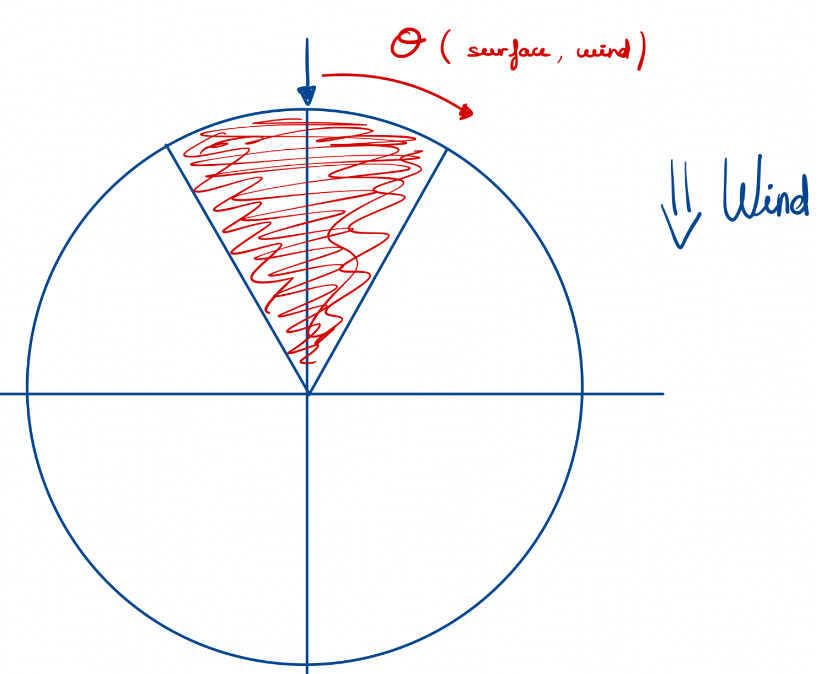 Θ ( surface, wind)
Wind